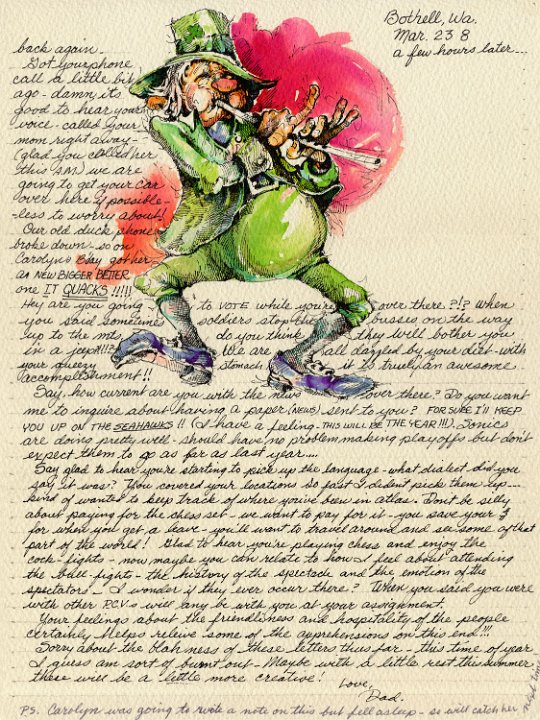 Bothell, Wa.
Mar. 23 8
a few hours later...
back again -
Got your phone
call a little bit
ago - damn, its
good to hear your
voice - called your
mom right away -
(glad you called her
this AM) we are
going to get your car
over here if possible -
-less to worry about!
Our old duck phone
broke down - so on
Carolyn's Bday got her
a NEW BIGGER BETTER
one IT QUACKS !!!!!
Hey are you going to VOTE while you're over there ?!? When
you said sometimes soldiers stop the busses on the way
up to the mts. do you think they will bother you
in a jeep!!!? We are all dazzled by your diet - with
your queezy stomach it is truely an awesome
accomplishment !!
Say, how current are you with the news over there? Do you want
me to inquire about having a paper (NEWS) sent to you? FOR SURE I'll KEEP
YOU UP ON THE SEAHAWKS !! (I have a feeling - THIS WILL BE THE YEAR!!!). Sonics
are doing pretty well - should have no problem making playoffs but don't
expect them to go as far as last year....
Say glad to hear you're starting to pick up the language - what dialect did you
say it was? You covered your locations so fast I dident pick them up...
kind of wanted to keep track of where you've been in atlas. Dont be silly
about paying for the chess set - we want to pay for it - you save your $
for when you get a leave - you'll want to travel around and see some of that
part of the world! Glad to hear you're playing chess and enjoy the
cock-fights - now maybe you can relate to how I feel about attending
the bull-fights - the history of the spectacle and the emotion of the
spectators... I wonder if they ever occur there? When you said you were
with other P.C.V.s will any be with you at your assignment.
Your feelings about the friendliness and hospitality of the people
certainly helps releive some of the apprehensions on this end!!!
Sorry about the blahness of these letters thus far - this time of year
I guess am sort of burnt out - Maybe with a little rest this summer
these will be a little more creative!
Love,
Dad.
P.S. Carolyn was going to write a note on this but fell asleep - so will catch her next time!